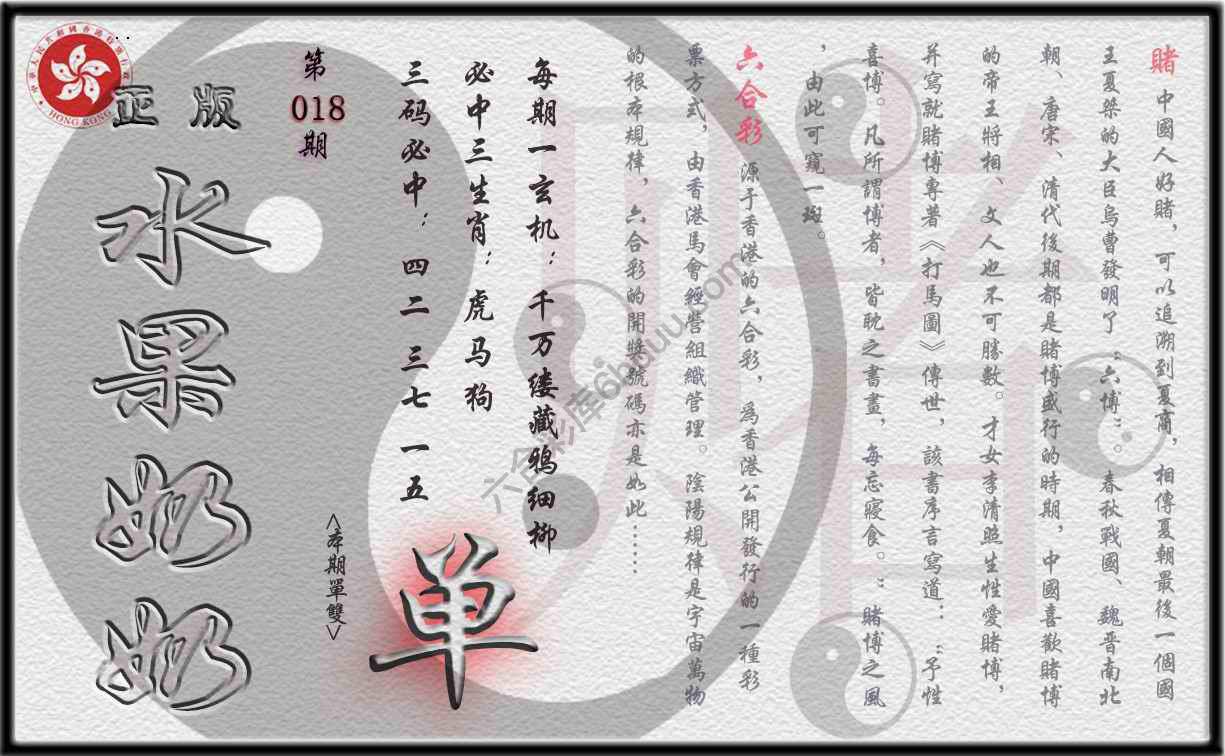 賭 中國人好賭，可以追溯到夏商，相傳夏朝最後一個國
王夏桀的大臣烏曹發明了“六博”。春秋戰國、魏晋南北
朝、唐宋、清代後期都是賭博盛行的時期，中國喜歡賭博
的帝王將相、文人也不可勝數。才女李清照生性愛賭博，
并寫就賭博專著《打馬圖》傳世，該書序言寫道：“予性
喜博。凡所謂博者，皆耽之晝，每忘寢食。”賭博之風
，由此可窺一斑。
六合彩 源于香港的六合彩，爲香港公開發行的一種彩
票方式，由香港馬會經營組織管理。陰陽規律是宇宙萬物
的根本規律，六合彩的開獎號碼亦是如此……
每期一玄机：千万缕藏鴉细柳
必中三生肖：虎马狗
三码必中：四二 三七 一五
第
018
期
<本期單雙>
单
正版
水果奶奶
HONG KONG
六合彩库6hduu.com